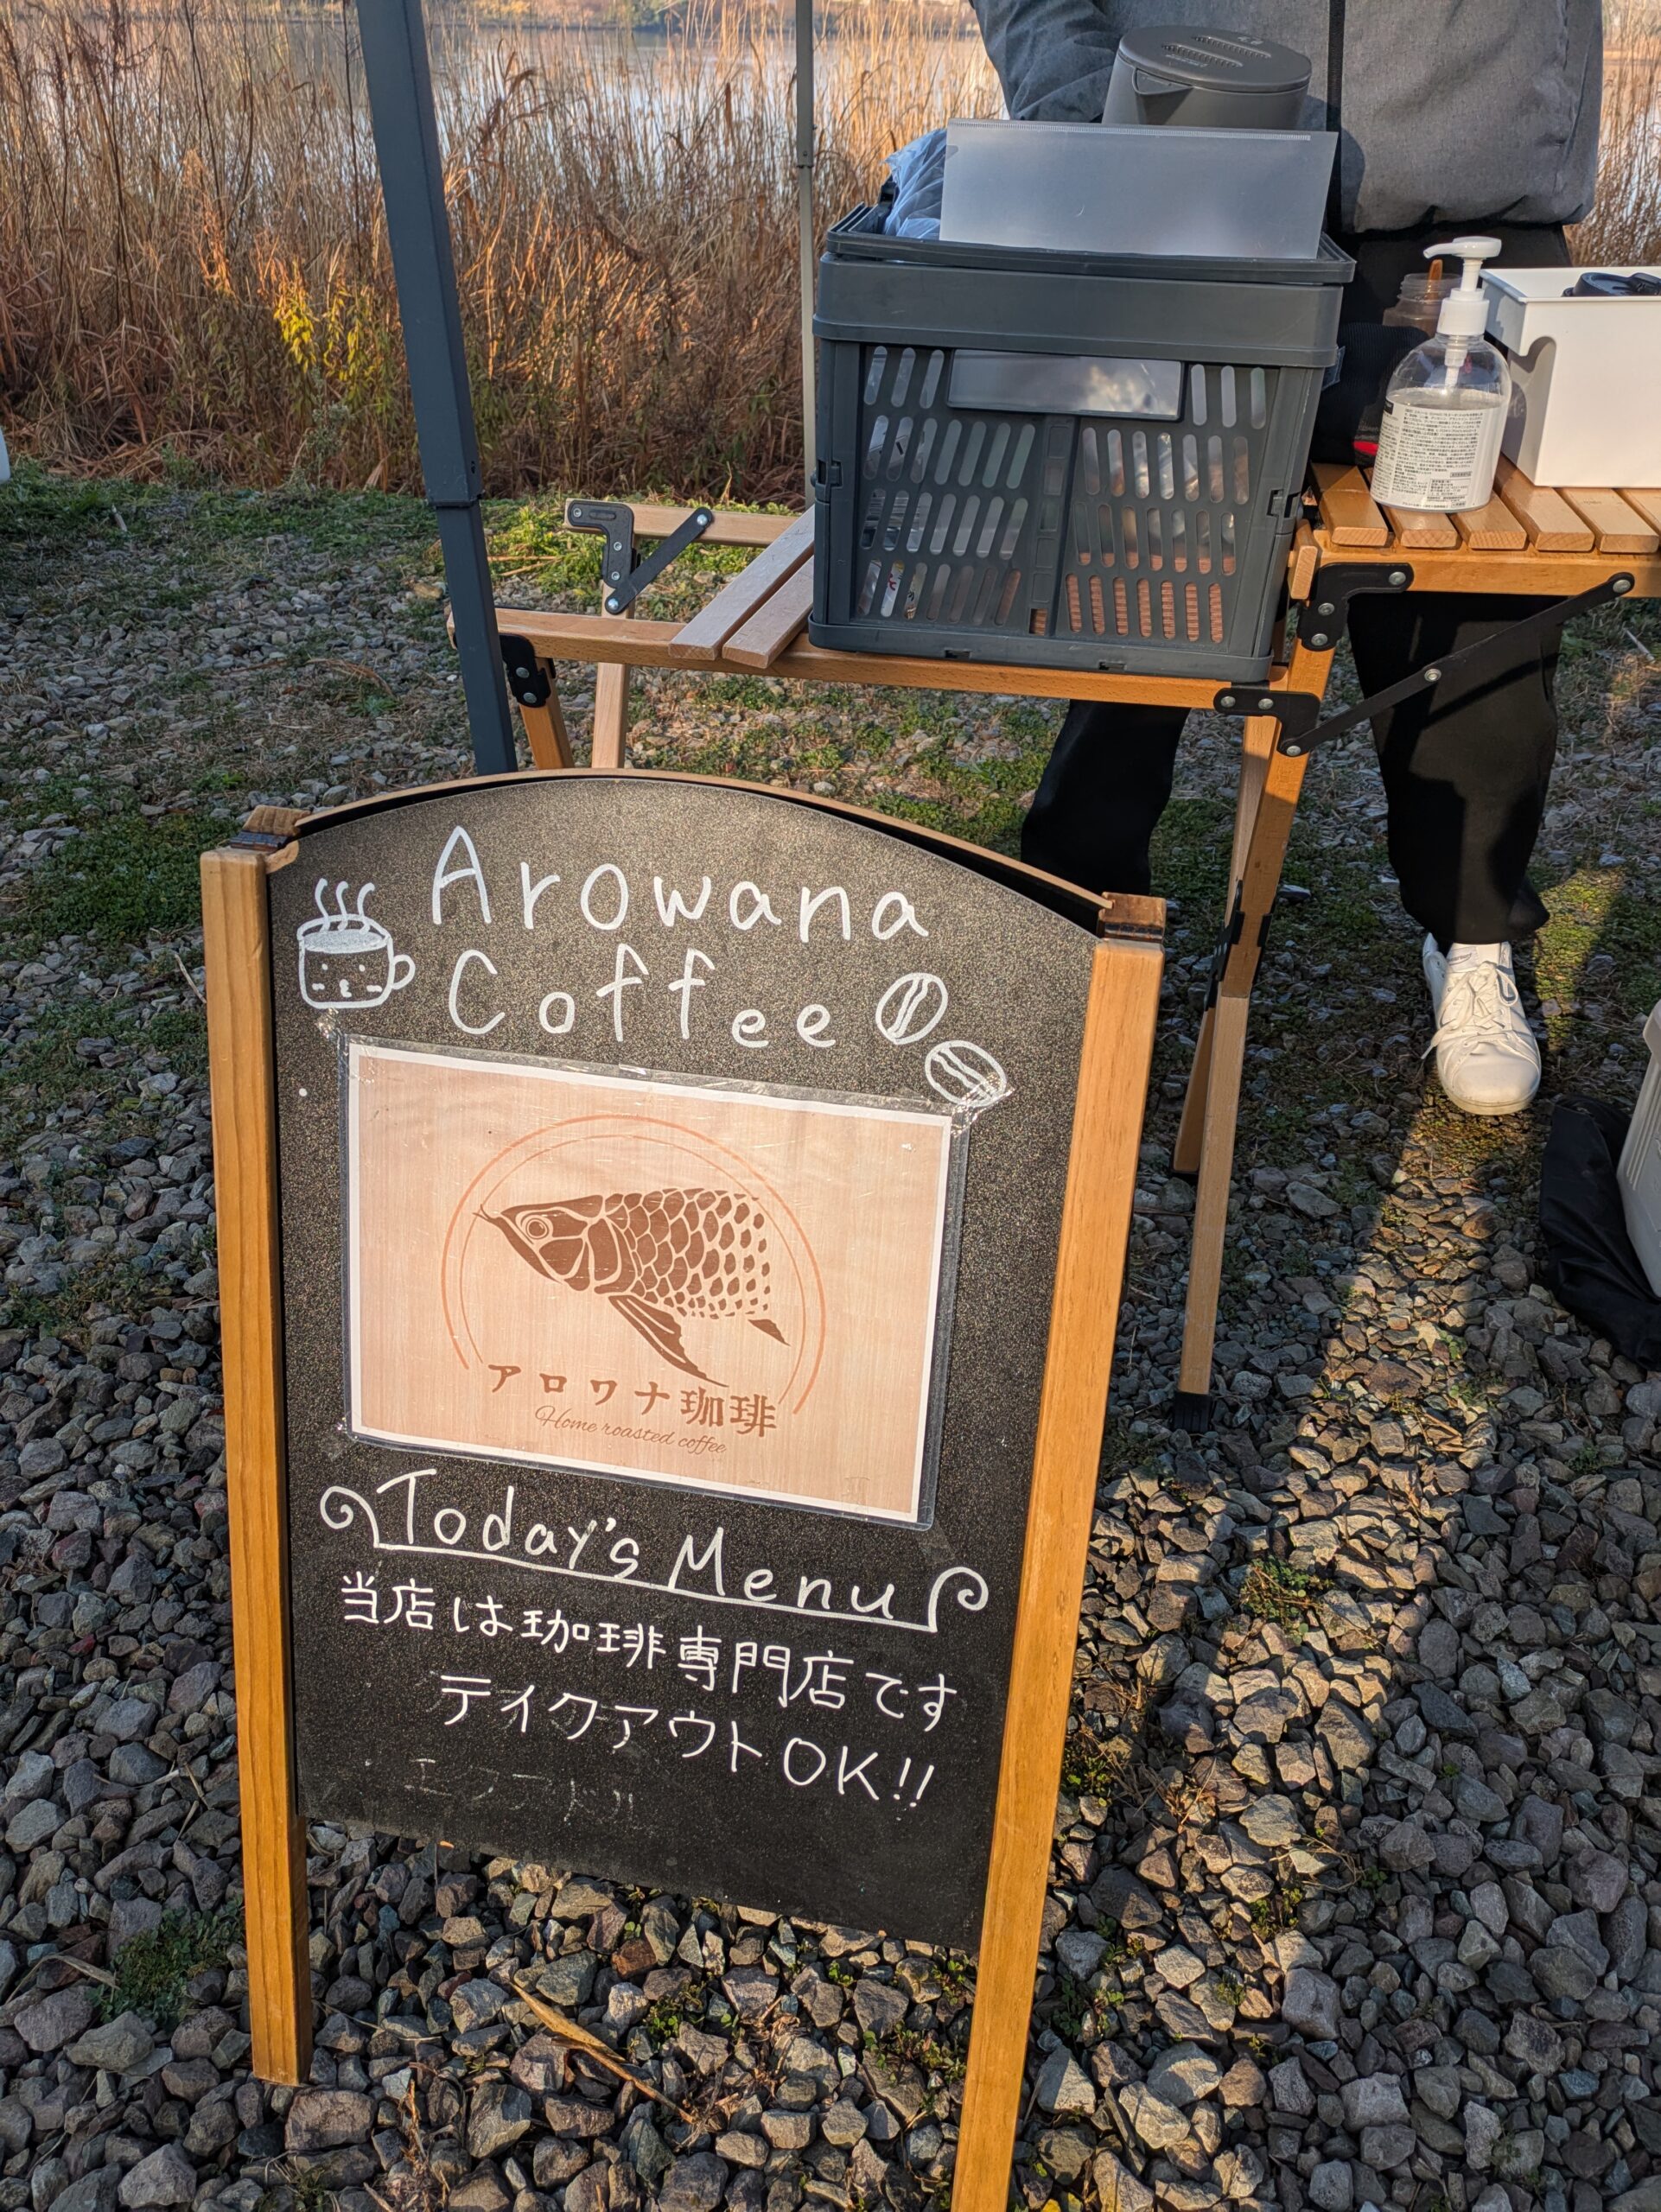 Arowana
Coffee
アロワナ珈琲
Home roasted coffee
Today's Menu
当店は珈琲専門店です
テイクアウトOK!!
エクアドル